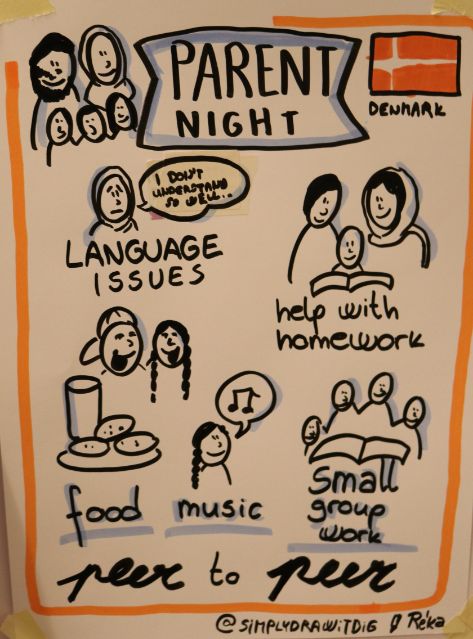 PARENT
NIGHT
DENMARK
I DON'T
UNDERSTAND
SO WELL...
LANGUAGE
ISSUES
help with
homework
food
music
Small
group
work
peer to peer
@SIMPLYDRAWITDIG Réka